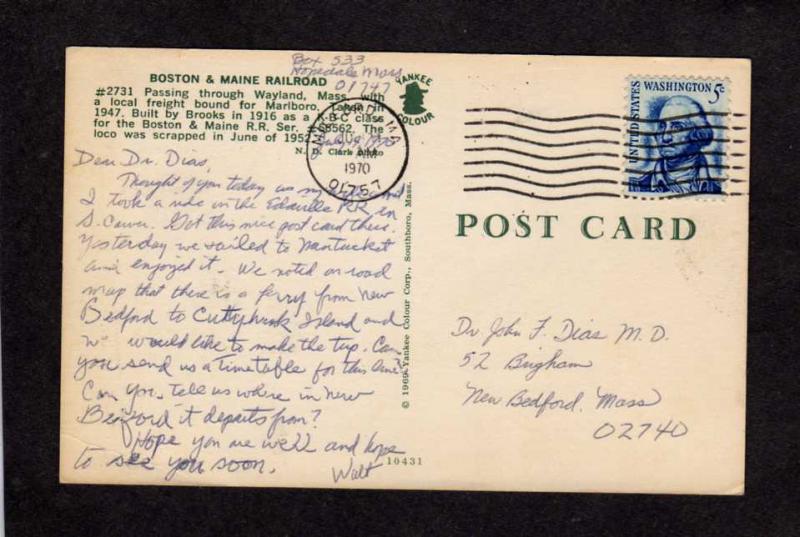 Box 533
Hopedale Mass
01747
BOSTON & MAINE RAILROAD
#2731 Passing through Wayland, Mass. with
a local freight bound for Marlboro,
1947. Built by Brooks in 1916 as a class
for the Boston & Maine R.R. Ser. 58562. The
loco was scrapped in June of 1952.
N. D. Clark Photo
YANKEE
COLOUR
MA
AM
1970
01757
UNITED STATES
WASHINGTON 5c
Dear Dr. Dias,
Thought of you today as my and
I took a ride on the Edaville RR in
S. Carver. Got this nice post card there.
Yesterday we sailed to Nantucket
and enjoyed it. We noted on road
map that there is a ferry from New
Bedford to Cuttyhunk Island and
we would like to make the trip. Can
you send us a timetable for this line?
Can you tell us where in New
Bedford it departs from?
Hope you are well and hope
to see you soon.
Walt
10431
© 1969 Yankee Colour Corp., Southboro, Mass.
POST CARD
Dr John F. Dias M.D.
52 Brigham
New Bedford, Mass
02740